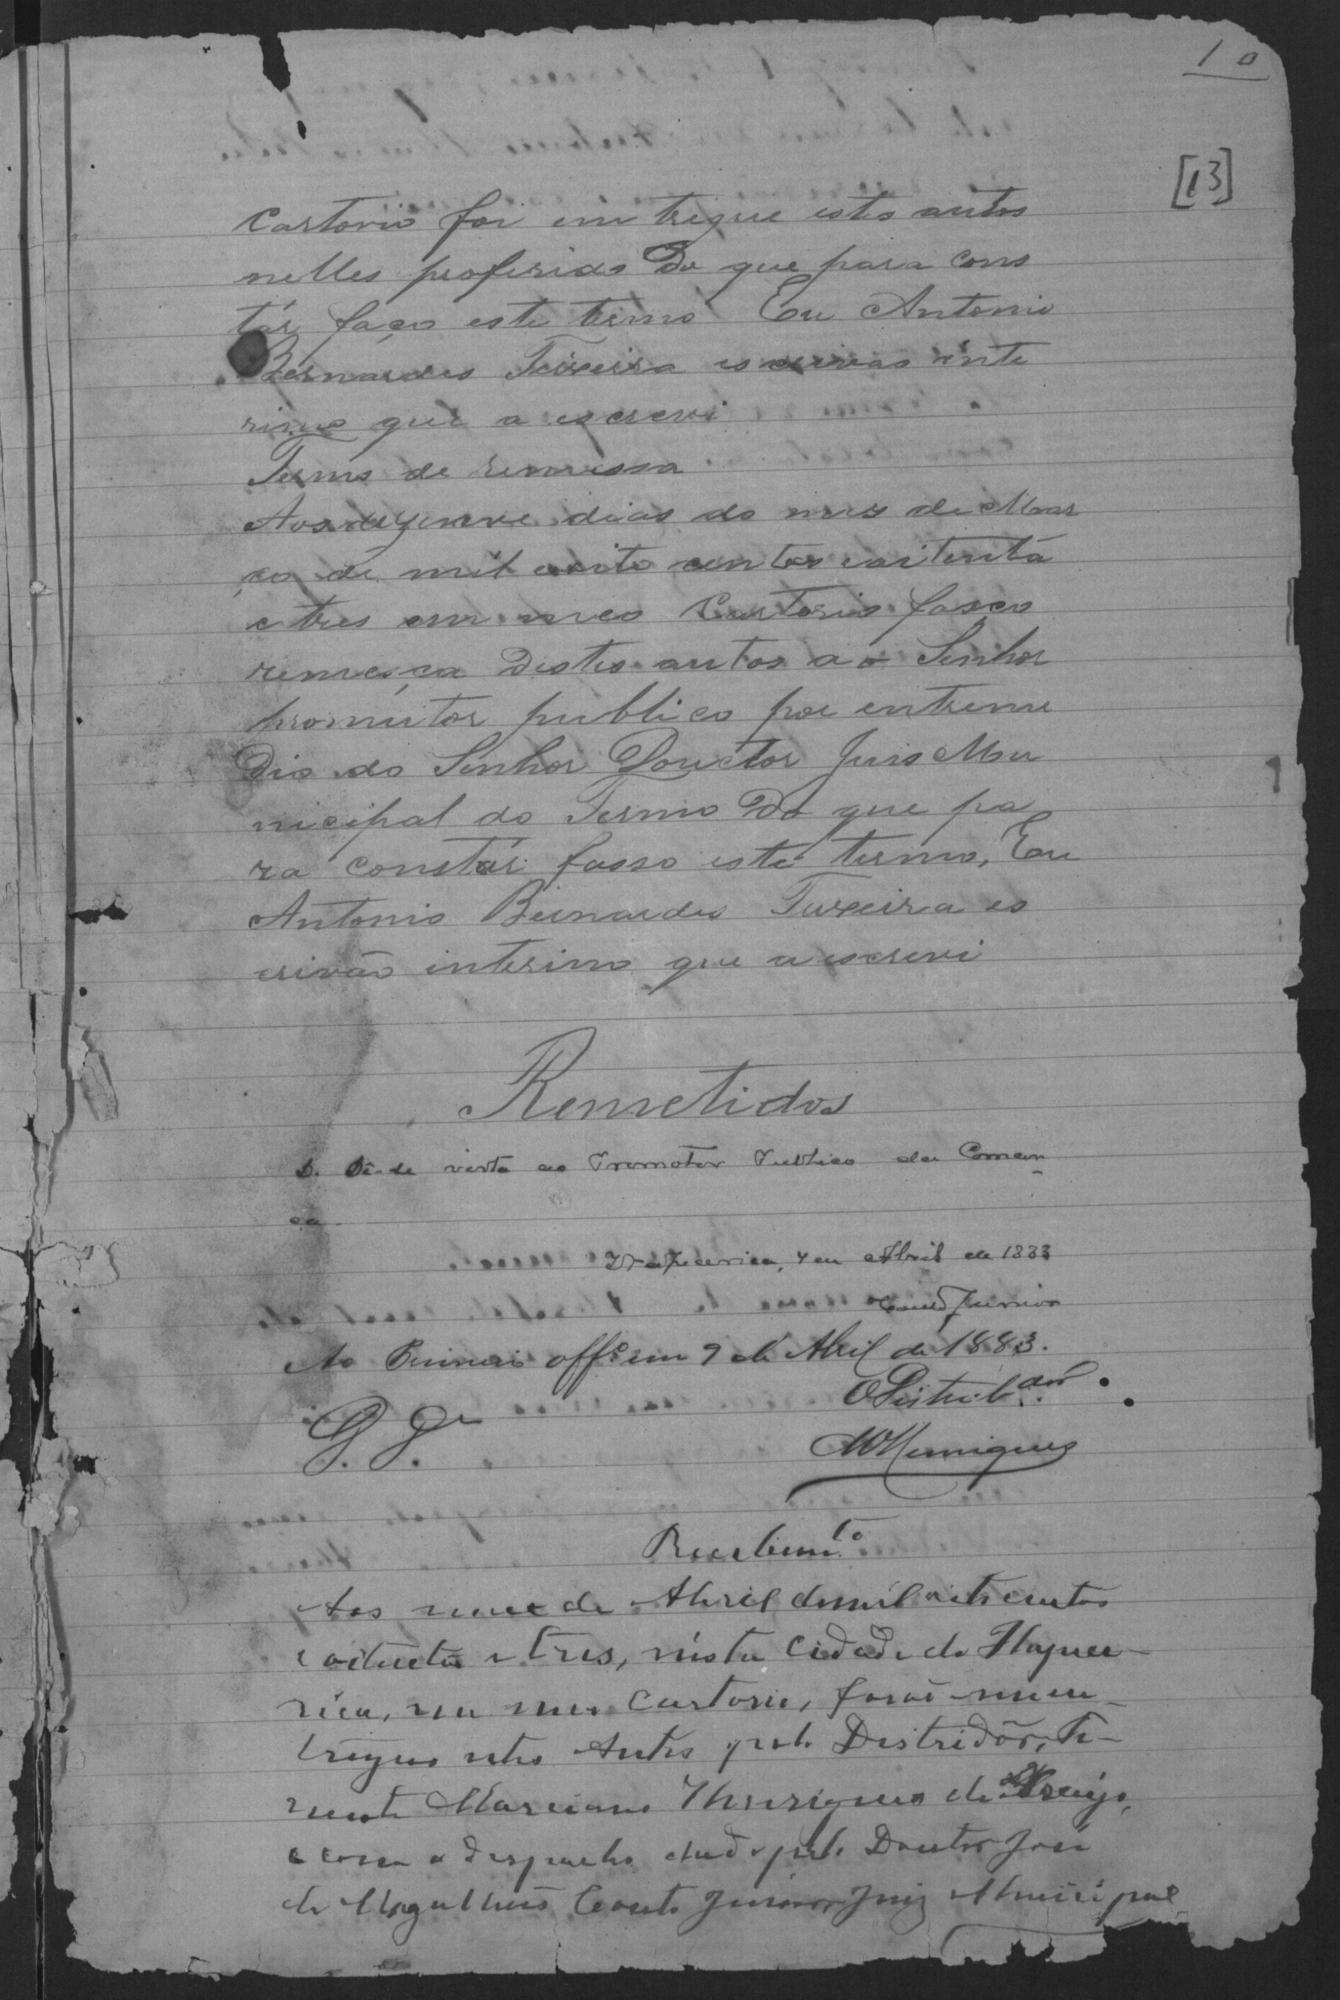 10
[13]
Cartorio foi em tregue estes autos
nelles proferido Do que para cons
tár faço este termo Eu Antonio
Bernardes Teixeira escrivão inte
rino que a escrevi
Termo de remessa
Aos dezenove dias do mes de Mar
ço de mil ooito centos eoitenta
e tres em meo Cartorio fasço
remesça Destes autos a o Senhor
promutor publico por entreme
Dio do Senhor Douctor Juis Mu
nicipal do Termo Do que pa
ra constár fasso este termo, Eu
Antonio Bernardes Teixeira es
crivão interino que a escrevi
Remetidos
D. Dê-se vista ao Promotor Publico da Comar
ca
Itapecerica, 4 de Abril de 1883
Couto Junior
Ao Primeiro offº em 9 de Abril de 1883.
O Distribdor.
G. Gr.
MHenriques
Recebimto
Aos nove de Abril de mil oitocentos
e oitenta e tres, nesta Cidade de Itapece-
rica, em meu Cartorio, forão-me en-
tregues estes Autos pelo Distridôr, Te-
nente Marciano Henriques de Araujo,
e com o despacho dado pelo Doutor José
de Magalhães Couto Junior Juiz Municipal